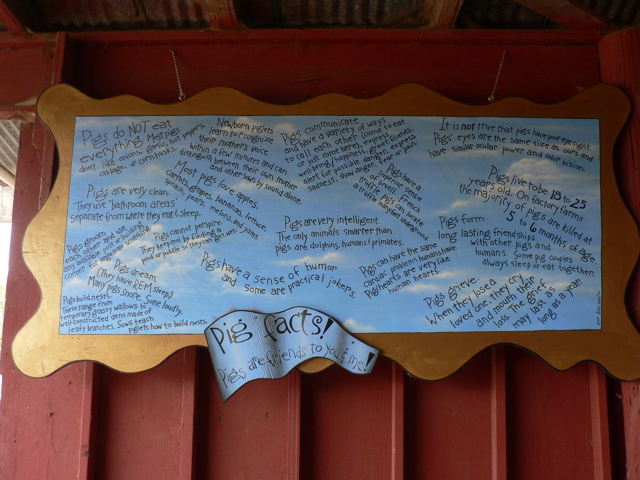 Pigs do NOT eat
everything. Most pigs
don't like onions, garlic, hot peppers,
cabbage, or corn husks.
Newborn piglets
learn to recognize
their mother's voice
within a few minutes and can
distinguish between their own mother
and other sows by sound alone.
Pigs communicate
in a variety of ways
to call each other (come to eat
or just come here), greet friends,
alert for possible danger, express
sadness, show anger, fear or pain.
It is not true that pigs have poor eyesight.
Pigs' eyes are the same size as ours and
have similar ocular power and color vision.
Most pigs love apples,
carrots, grapes, bananas, lettuce,
bread, pears, melons, and
Pigs have a
sense of smell
Pigs live to be 18 to 25
years old. On factory farms
the majority of pigs are killed at
5 to 6 months of age.
Pigs are very clean.
They use "bathroom areas"
separate from where they eat & sleep.
Pigs are very intelligent.
The only animals smarter than
pigs are dolphins, humans & primates.
Pigs form
long lasting friendships
with other pigs and
humans. Some pig couples
always sleep or eat together.
Pigs groom
each other
Pigs cannot perspire.
They keep cool by finding a
pond or puddle so they can get wet.
Pigs have a sense of humor
and some are practical jokers.
Pigs can have the same
cardiac problems humans have.
Pig hearts are very like
human hearts.
Pigs dream
(They have REM sleep)
Many pigs snore. Some loudly.
Pigs grieve
When they lose a
loved one, they cry
and mourn their
loss. The grief
may last as
long as a year.
Pigs build nests.
These range from
temporary grassy wallows to
well-constructed dens made of
leafy branches. Sows teach
piglets how to build nests.
Pig facts!
Pigs are friends to you & me!